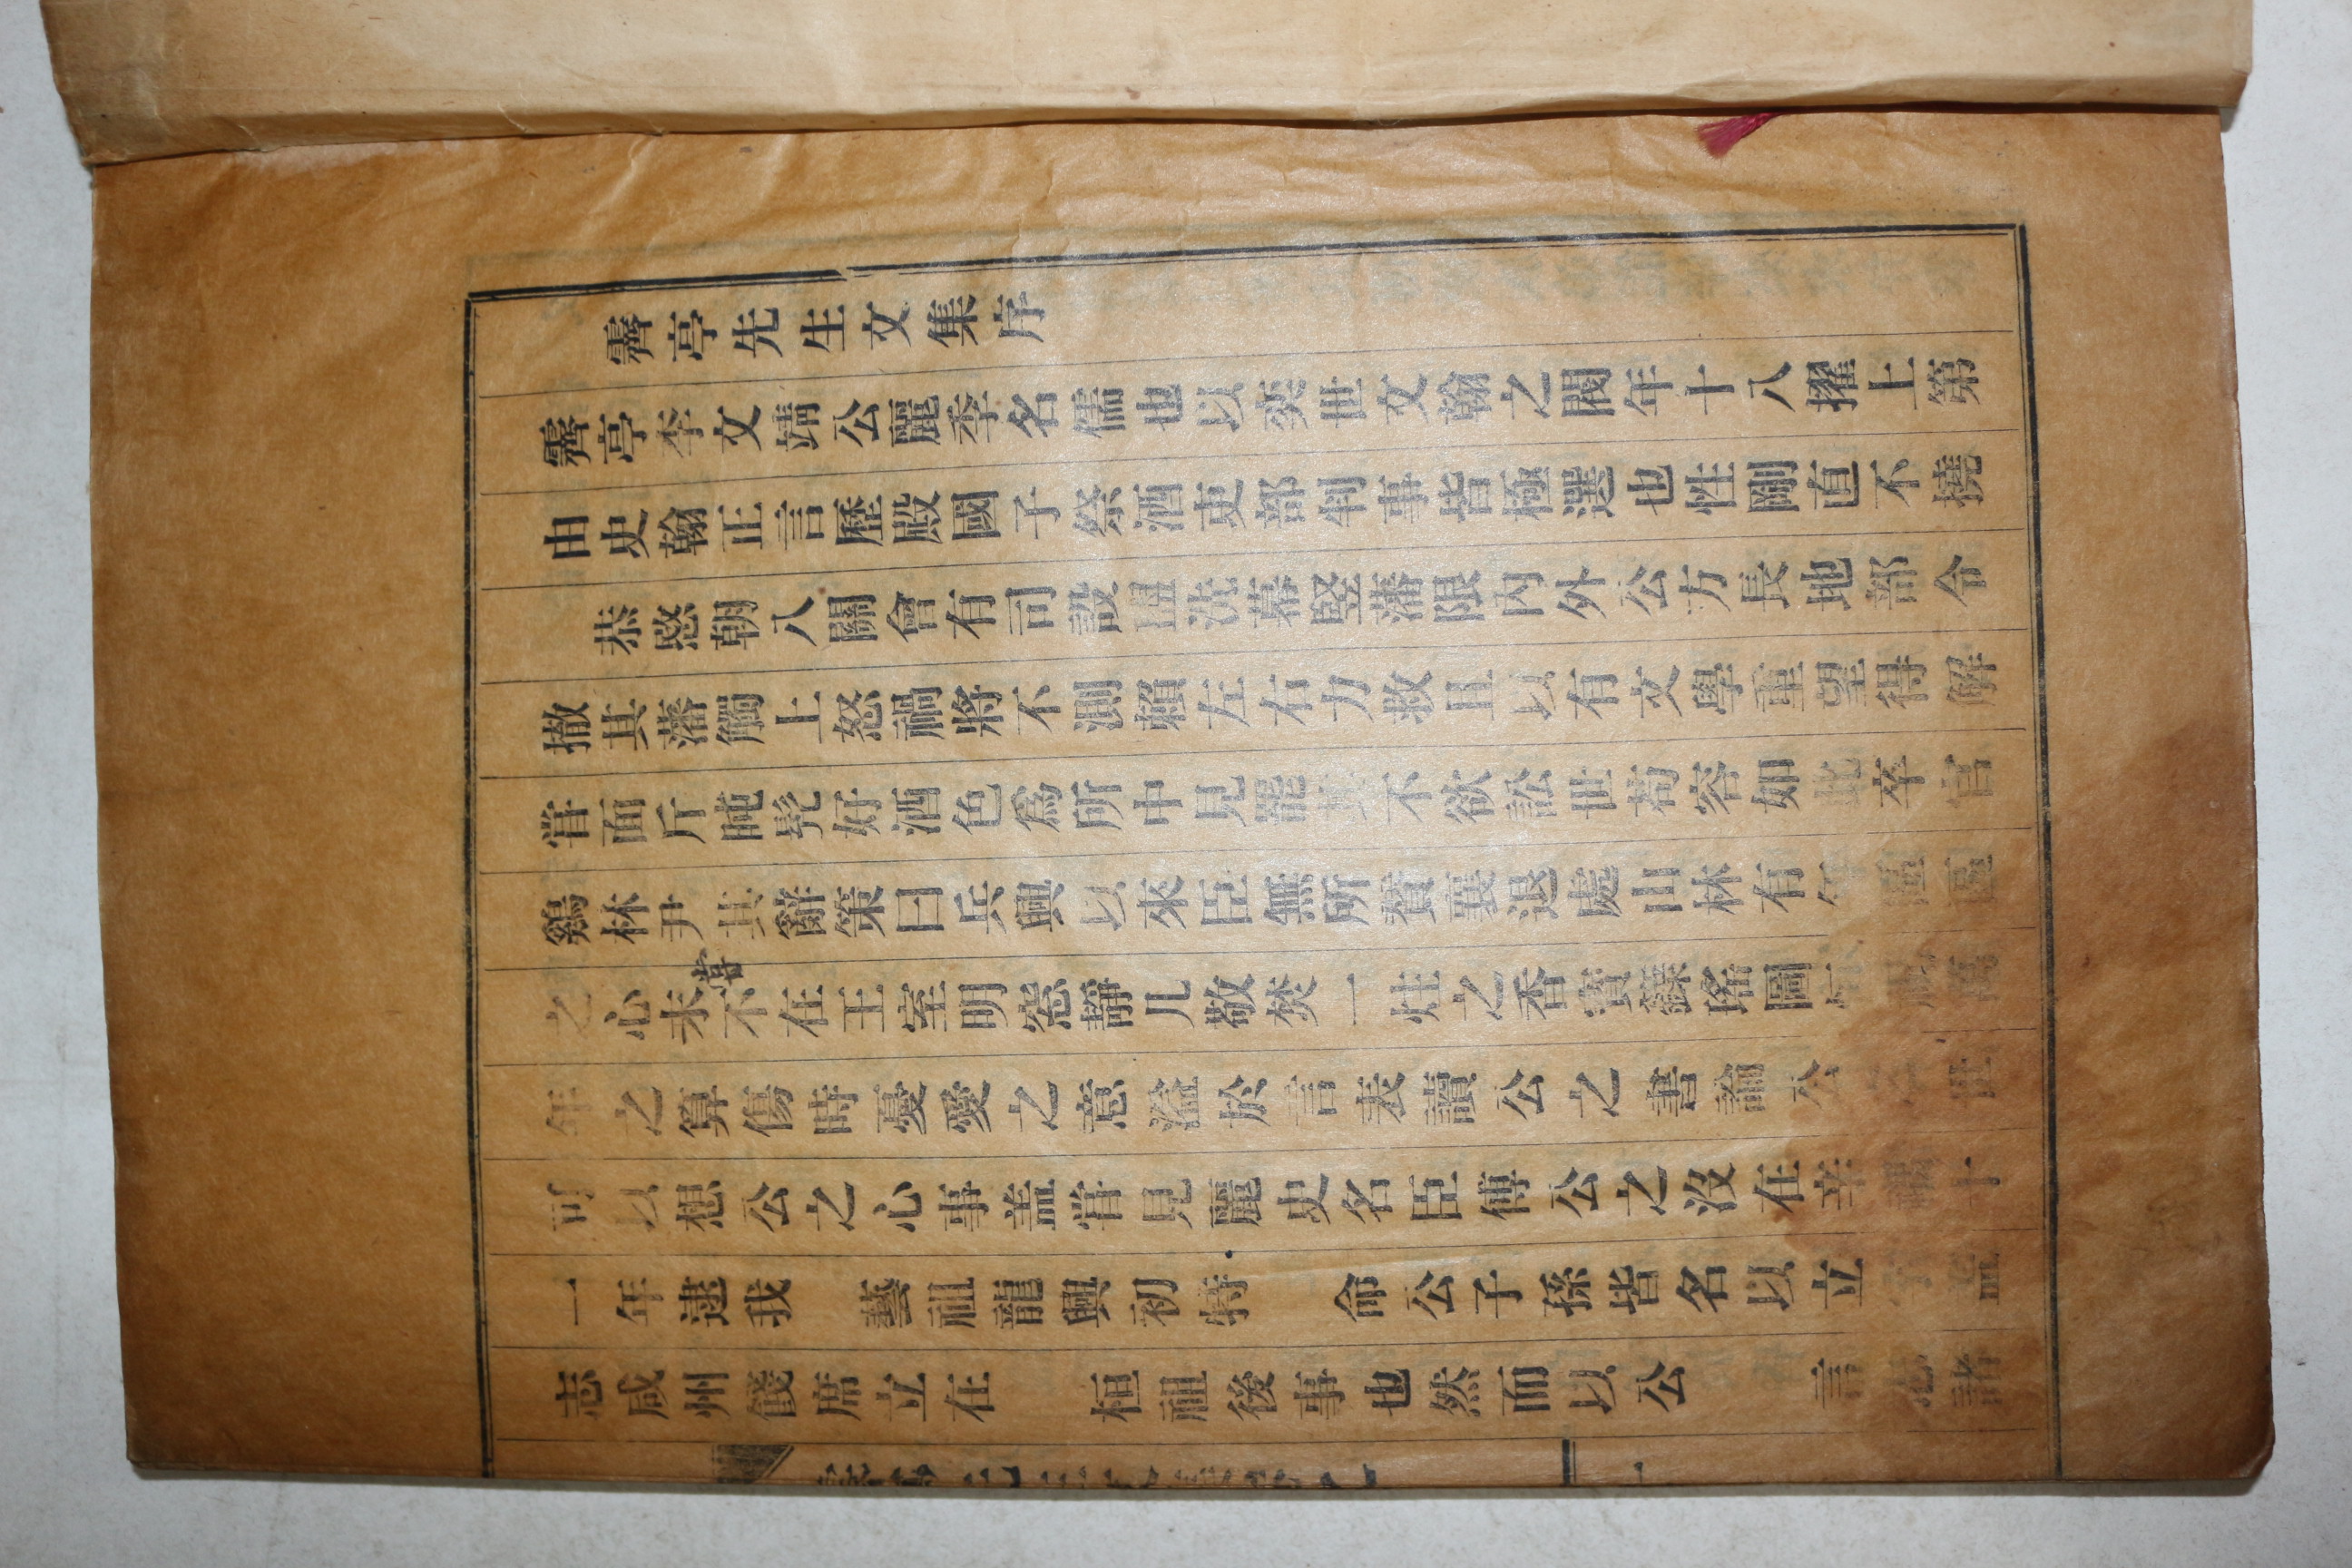 霽亭先生文集序
霽亭李文靖公麗季名儒也以奕世文翰之閥年十八擢上第
由史翰正言歷殿國子祭酒吏部判事皆極選也性剛直不撓
恭愍朝八關會有司設盥洗幕竪藩限內外公方長地部令
撤其藩觸上怒禍將不測賴左右力救且以有文學重望得解
甞面斥旽髠好酒色爲所中見罷其不欲訟世苟容如此卒官
鷄林尹其辭策曰兵興以來臣無所贊襄退處山林有年區區
之心未甞不在王室明窓靜几敬焚一炷之香寶籙瑤圖恒祝萬
年之算傷時憂愛之意溢於言表讀公之書論公之世
可以想公之心事盖甞見麗史名臣傳公之沒在辛禑十
一年逮我 藝祖龍興初特 命公子孫皆名以立字盖
志咸州餞席立在 桓祖後事也然而以公 言志諸
一